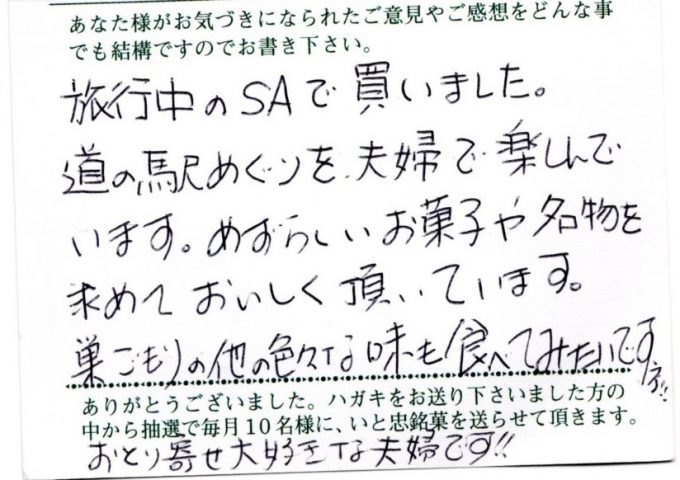 あなた様がお気づきになられたご意見やご感想をどんな事
でも結構ですのでお書き下さい。
旅行中のSAで買いました。
道の駅めぐりを夫婦で楽しんで
います。めずらしいお菓子や名物を
求めておいしく頂いています。
巣ごもりの他の色々な味も食べてみたいです
ありがとうございました。ハガキをお送り下さいました方の
中から抽選で毎月10名様に、いと忠銘菓を送らせて頂きます。
おとり寄せ大好きな夫婦です!!